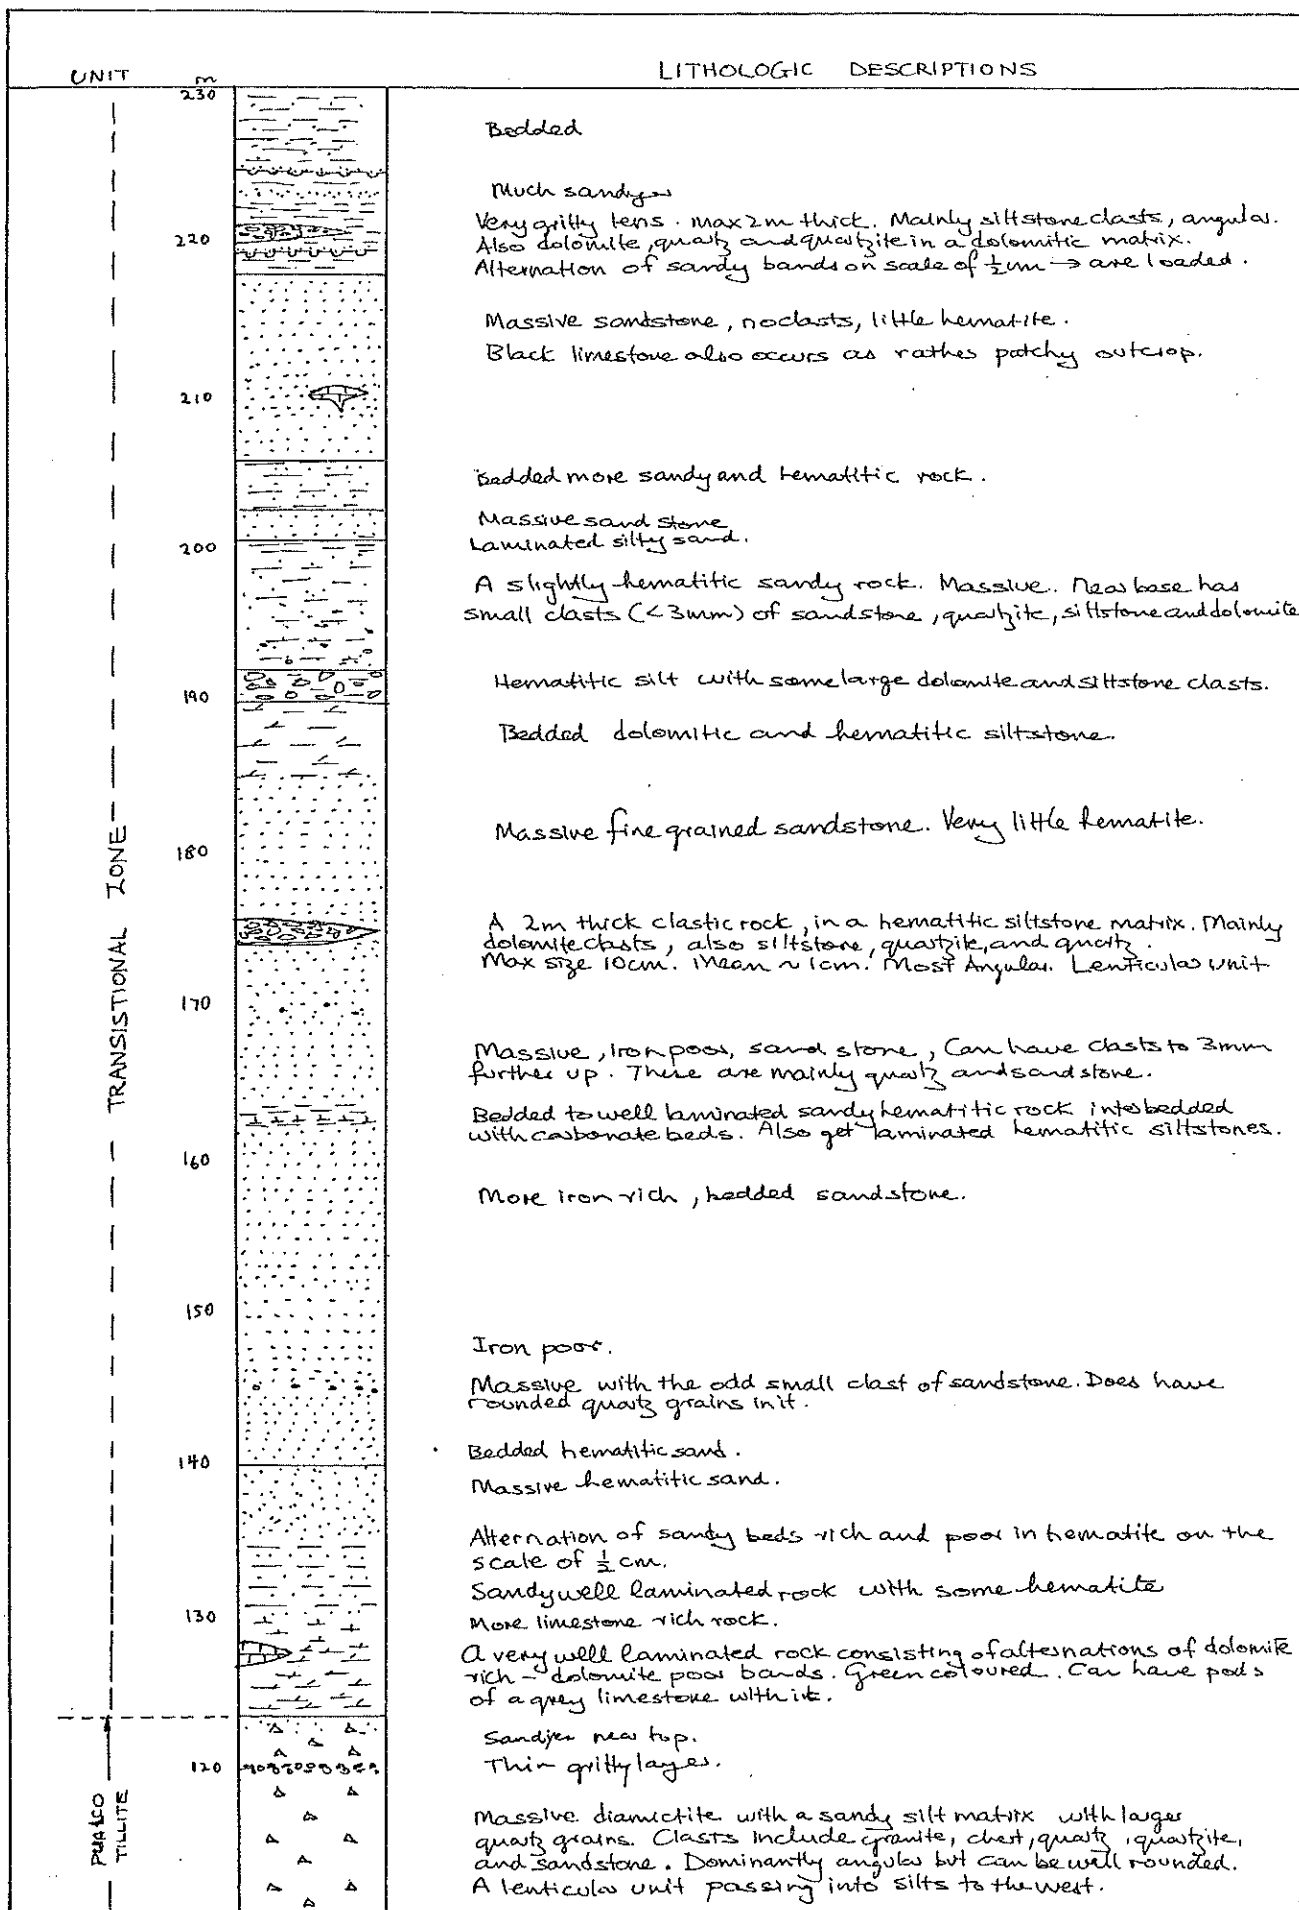 UNIT m LITHOLOGIC DESCRIPTIONS
230
Bedded
Much sandyer
Very gritty lens. max 2m thick. Mainly siltstone clasts, angular.
220
Also dolomite, quartz and quartzite in a dolomitic matrix.
Alternation of sandy bands on scale of ½cm → are loaded.
Massive sandstone, no clasts, little hematite.
Black limestone also occurs as rather patchy outcrop.
210
Bedded more sandy and hematitic rock.
Massive sand stone
200
Laminated silty sand.
A slightly hematitic sandy rock. Massive. Near base has
small clasts (<3mm) of sandstone, quartzite, siltstone and dolomite
190
Hematitic silt with some large dolomite and siltstone clasts.
Bedded dolomitic and hematitic siltstone.
TRANSISTIONAL ZONE
Massive fine grained sandstone. Very little hematite.
180
A 2m thick clastic rock, in a hematitic siltstone matrix. Mainly
dolomite clasts, also siltstone, quartzite, and quartz.
Max size 10cm. Mean ~ 1cm. Most Angular. Lenticular unit
170
Massive, iron poor, sand stone, Can have clasts to 3mm
further up. These are mainly quartz and sandstone.
Bedded to well laminated sandy hematitic rock interbedded
with carbonate beds. Also get laminated hematitic siltstones.
160
More iron rich, bedded sandstone.
150
Iron poor.
Massive with the odd small clast of sandstone. Does have
rounded quartz grains in it.
Bedded hematitic sand.
140
Massive hematitic sand.
Alternation of sandy beds rich and poor in hematite on the
scale of ½ cm.
Sandy well laminated rock with some hematite
130
More limestone rich rock.
A very well laminated rock consisting of alternations of dolomite
rich - dolomite poor bands. Green coloured. Can have pods
of a grey limestone with it.
Sandyer near top.
120
Thin gritty layer.
TILLITE
Massive diamictite with a sandy silt matrix with larger
quartz grains. Clasts include granite, chert, quartz, quartzite,
and sandstone. Dominantly angular but can be well rounded.
A lenticular unit passing into silts to the west.